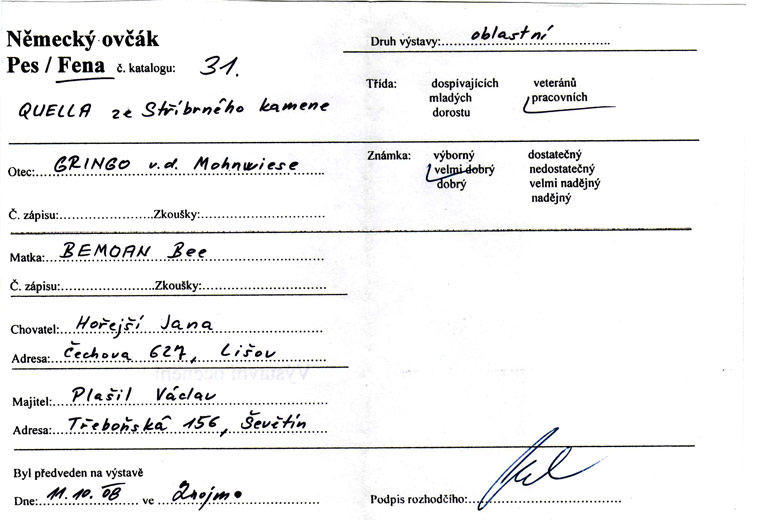 Německý ovčák
Pes / Fena č. katalogu: 31.
QUELLA ze Stříbrného kamene
Otec: GRINGO v.d. Mohnwiese
Č. zápisu:..............Zkoušky:
Matka: BEMOAN Bee
Č. zápisu:..............Zkoušky:
Chovatel: Hořejší Jana
Adresa: Čechova 627, Lišov
Majitel: Plašil Václav
Adresa: Třeboňská 156, Ševětín
Byl předveden na výstavě
Dne: 11.10.08 ve Znojmo
Druh výstavy: oblastní
Třída: dospívajících veteránů
mladých pracovních
dorostu
Známka: výborný dostatečný
velmi dobrý nedostatečný
dobrý velmi nadějný
nadějný
Podpis rozhodčího: